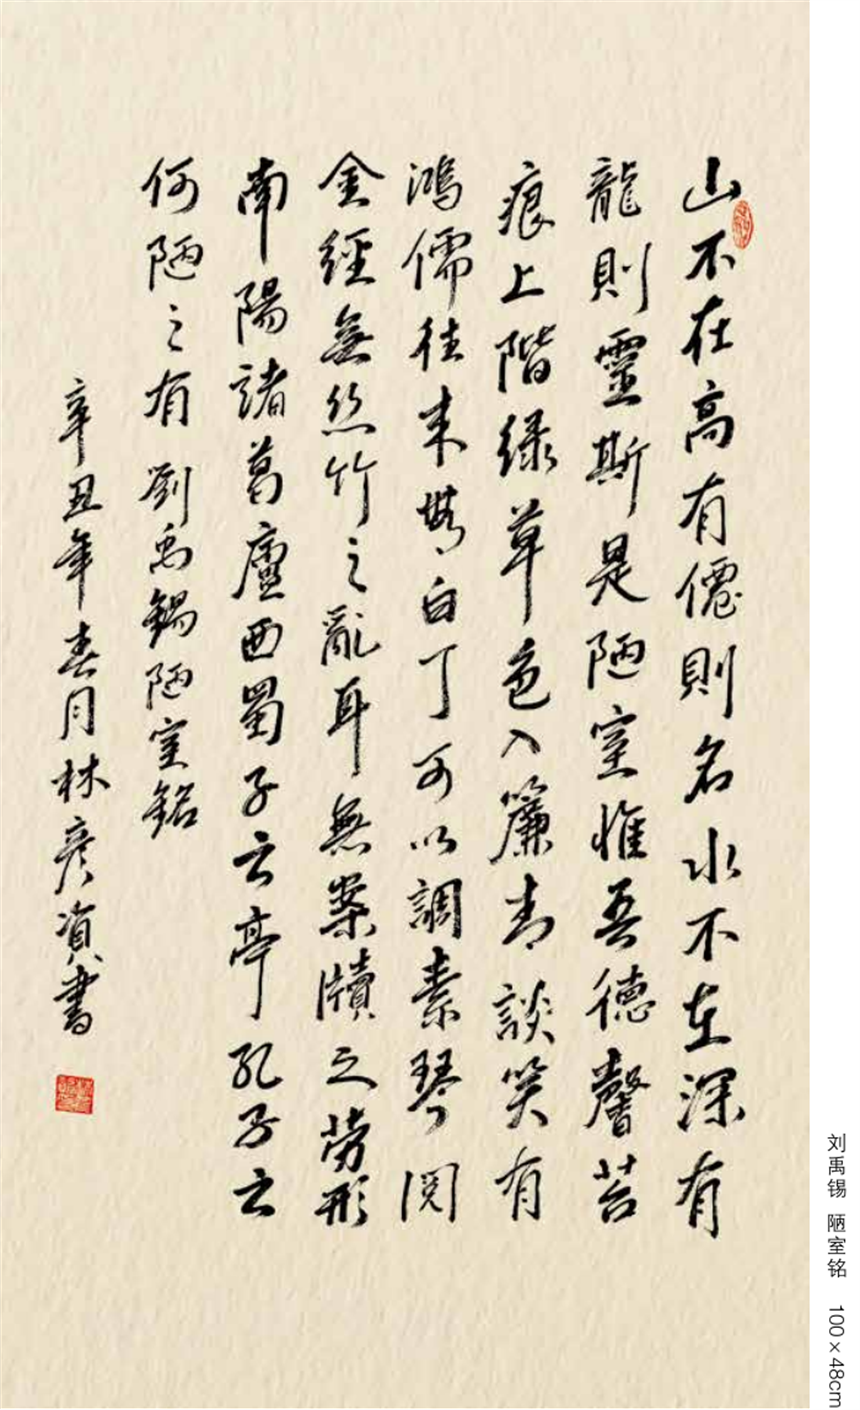 山不在高有僊則名水不在深有
龍則靈斯是陋室惟吾德馨苔
痕上階緑草色入簾青談笑有
鴻儒往来無白丁可以調素琴閲
金經無丝竹之亂耳無案牘之勞形
南陽諸葛廬西蜀子云亭孔子云
何陋之有 劉禹錫陋室銘
辛丑年春月林彦書
刘禹锡 陋室铭 100×48cm